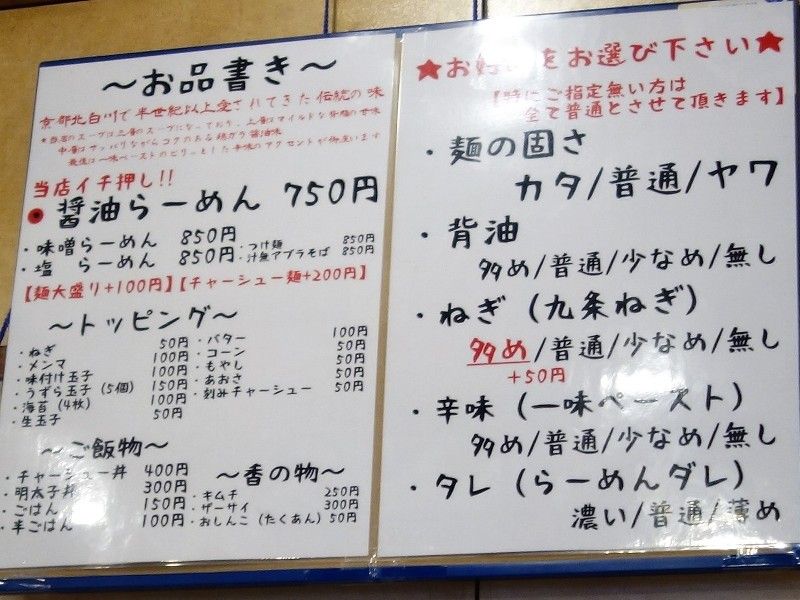 ～お品書き～
京都北白川で半世紀以上愛されてきた伝統の味
*当店のスープは三層のスープになっており、上層はマイルドな背脂の甘味
中層はサッパリながらコクのある鶏ガラ醤油味
最後は一味ペーストのピリッとした辛味のアクセントが御座います
当店イチ押し!!
醤油らーめん 750円
・味噌らーめん 850円
・塩 らーめん 850円
・つけ麺 850円
・汁無アブラそば 850円
【麺大盛り+100円】【チャーシュー麺+200円】
～トッピング～
・ねぎ 50円
・メンマ 100円
・味付け玉子 100円
・うずら玉子(5個) 150円
・海苔(4枚) 100円
・生玉子 50円
・バター 100円
・コーン 50円
・もやし 50円
・あおさ 50円
・刻みチャーシュー 50円
～ご飯物～
・チャーシュー丼 400円
・明太子丼 300円
・ごはん 150円
・半ごはん 100円
～香の物～
・キムチ 250円
・ザーサイ 300円
・おしんこ(たくあん) 50円
★お好みをお選び下さい★
【特にご指定無い方は
全て普通とさせて頂きます】
・麺の固さ
カタ/普通/ヤワ
・背油
多め/普通/少なめ/無し
・ねぎ(九条ねぎ)
多め/普通/少なめ/無し
+50円
・辛味(一味ペースト)
多め/普通/少なめ/無し
・タレ(らーめんダレ)
濃い/普通/薄め